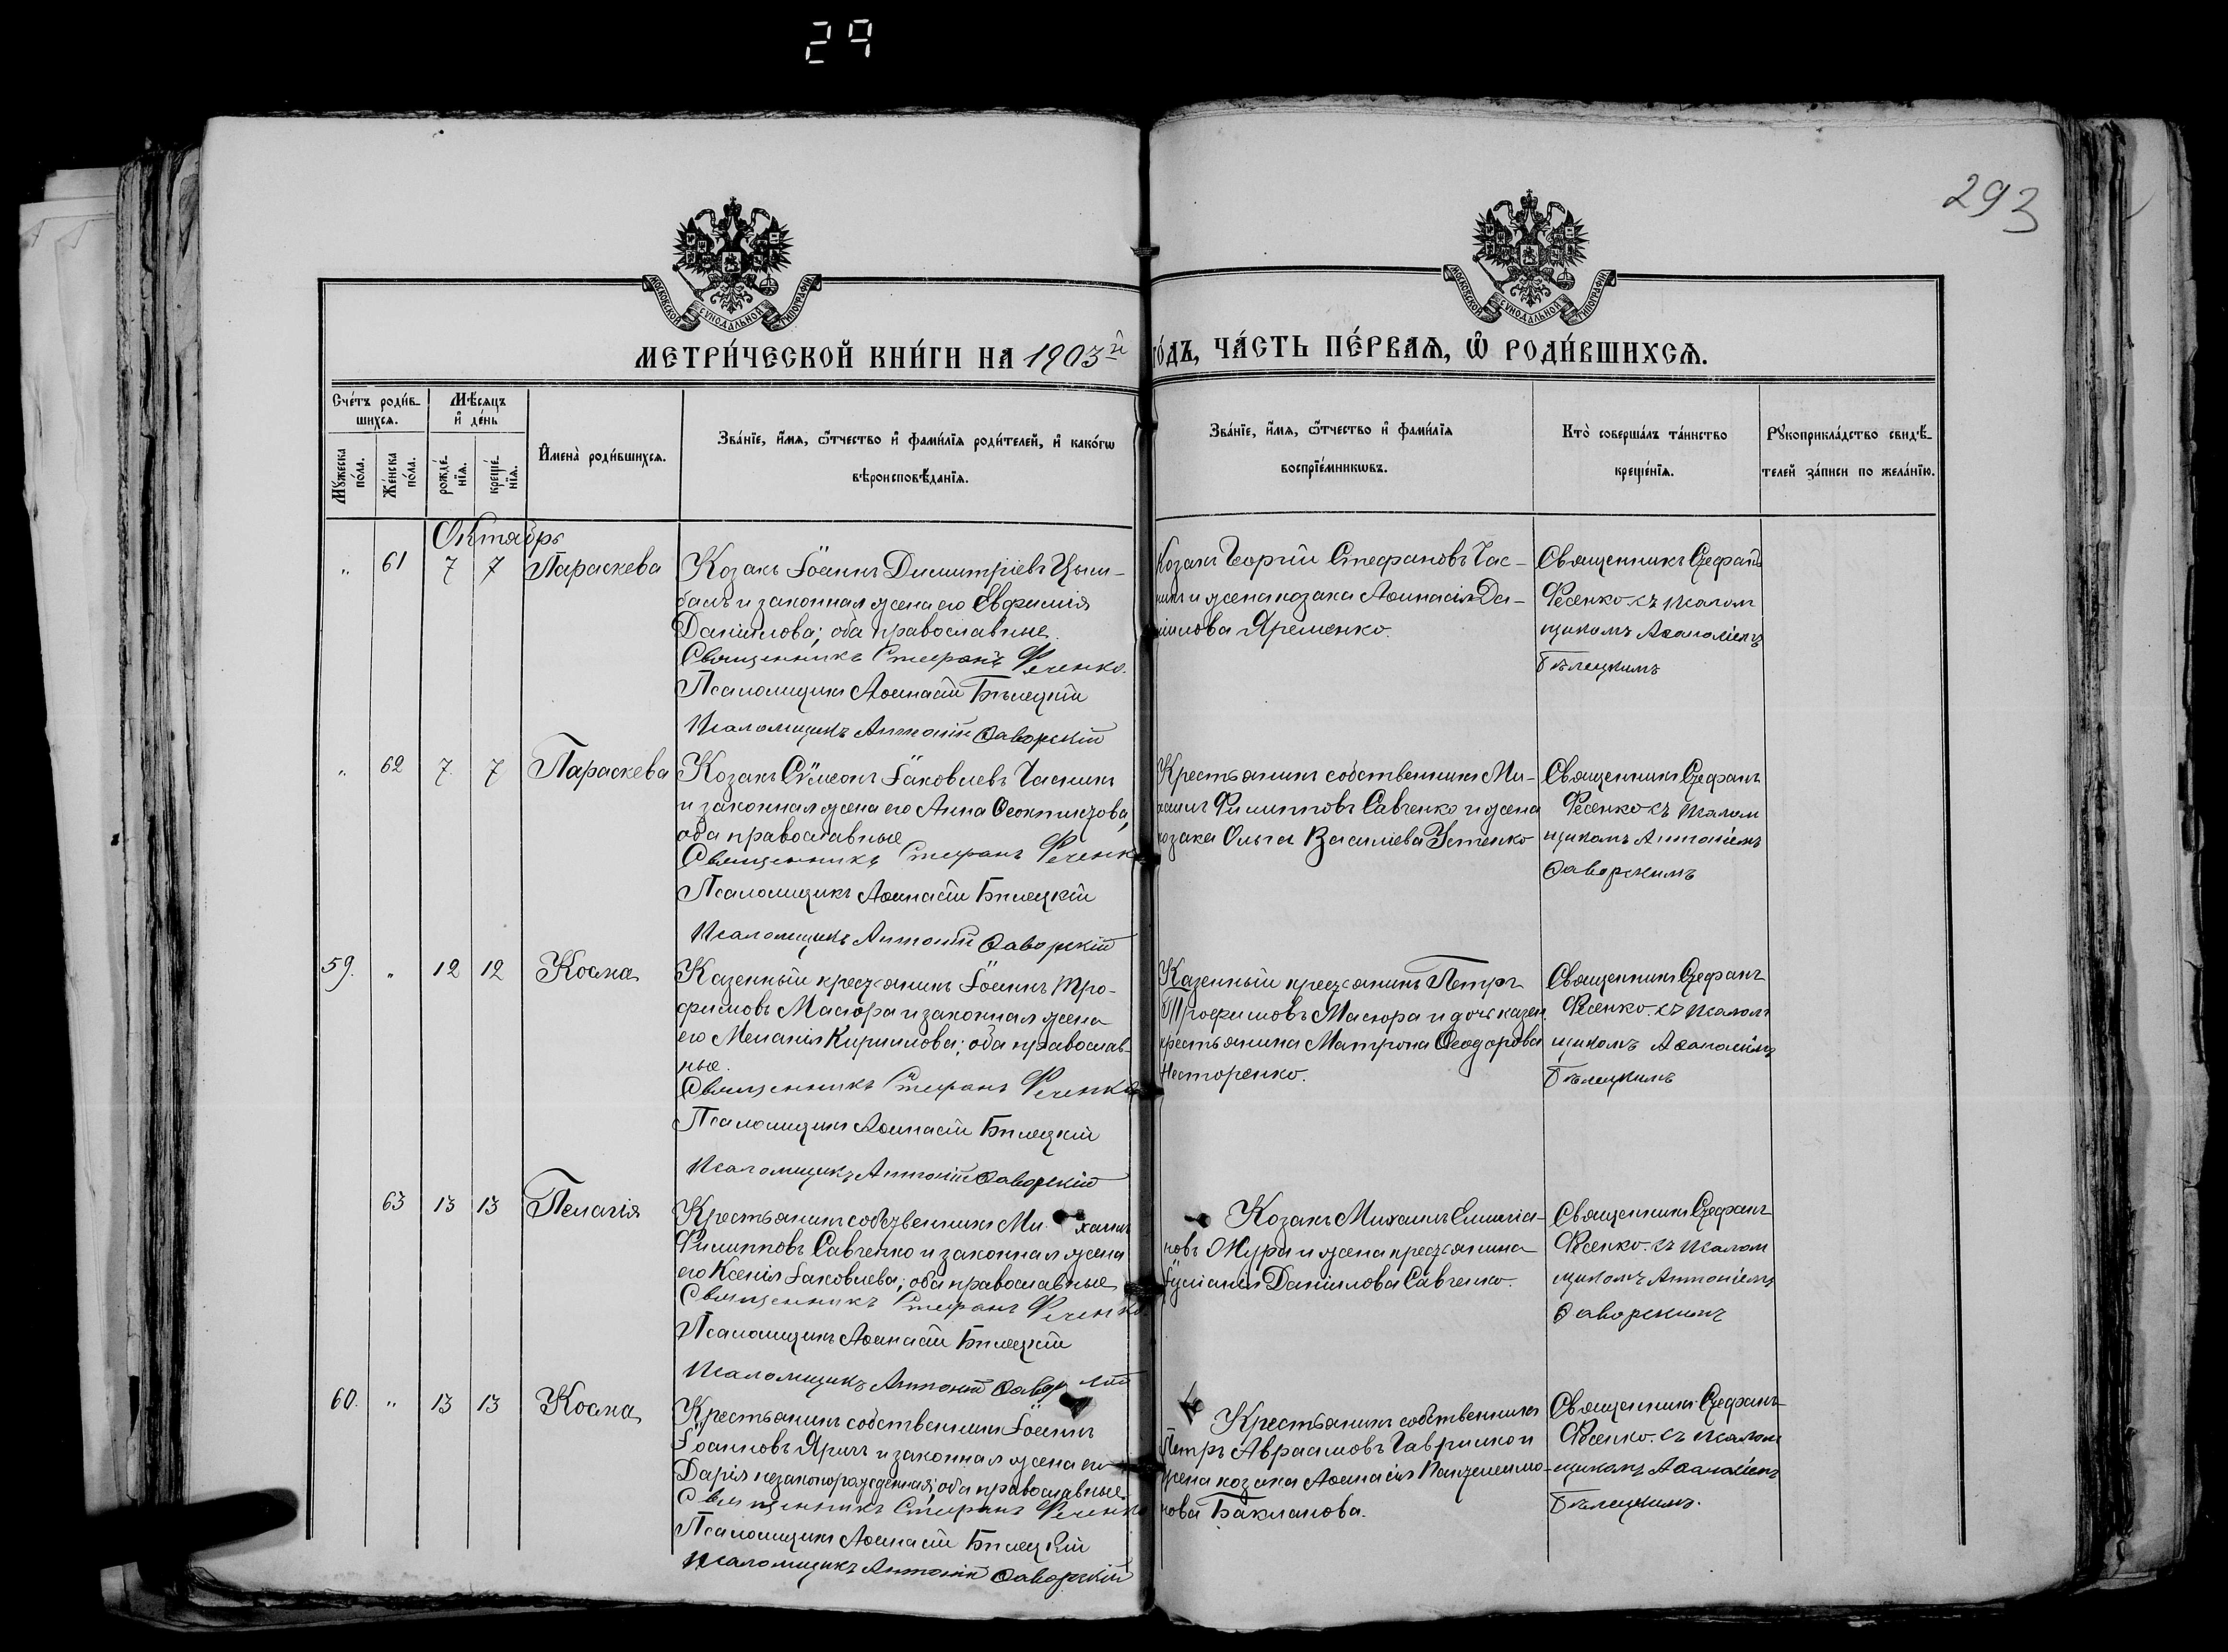 29
293
МОСКОВСКОЙ СѴНОДАЛЬНОЙ ТИПОГРАФІИ
МОСКОВСКОЙ СѴНОДАЛЬНОЙ ТИПОГРАФІИ
МЕТРИ́ЧЕСКОЙ КНИ́ГИ НА 1903й
го́дъ, ЧА́СТЬ ПЕ́РВАЯ, Ѡ҆ РОДИ́ВШИХСѦ.
Сче́тъ роди́в-
шихсѧ.
Мѣ́сяцъ
и҆ де́нь
Мꙋжеска
по́ла.
Же́нска
по́ла.
рожде́-
нїѧ.
креще́-
нїѧ.
И҆мена̀ роди́вшихсѧ.
Зва́нїе, и҆́мѧ, ѻ҆́тчество и҆ фами́лїѧ роди́телей, и҆ како́гѡ
вѣроисповѣ́данїѧ.
Зва́нїе, и҆́мѧ, ѻ҆́тчество и҆ фами́лїѧ
воспрїе́мникѡвъ.
Кто̀ соверша́лъ та́инство
креще́нїѧ.
Рꙋкоприкла́дство свидѣ́-
телей за́писи по жела́нїю.
Октябрь
" 61 7 7 Параскева
Козакъ Іоаннъ Димитріевъ Цым-
балъ и законная жена его Евфимія
Даніилова; оба православные.
Священникъ Стефанъ Фесенко.
Псаломщикъ Аѳанасій Бѣлецкій
Псаломщикъ Антоній Яворскій
Козакъ Георгій Стефановъ Час-
никъ и жена козака Аѳанасія Да-
ніилова Яременко.
Священникъ Стефанъ
Фесенко съ псалом
щикомъ Аѳанасіемъ
Бѣлецкимъ
" 62 7 7 Параскева
Козакъ Сѵмеонъ Іаковлевъ Часникъ
и законная жена его Анна Ѳеоктистова,
оба православные
Священникъ Стефанъ Фесенк
Псаломщикъ Аѳанасій Бѣлецкій
Псаломщикъ Антоній Яворскій
Крестьянинъ собственникъ Ми-
хаилъ Филипповъ Савченко и жена
козака Ольга Василіева Устенко
Священникъ Стефанъ
Фесенко съ псалом
щикомъ Антоніемъ
Яворскимъ
59. " 12 12 Косма
Казенный крестьянинъ Іоаннъ Тро-
фимовъ Масюра и законная жена
его Меланія Кириллова; оба православ-
ные.
Священникъ Стефанъ Фесенко
Псаломщикъ Аѳанасій Бѣлецкій
Псаломщикъ Антоній Яворскій
Казенный крестьянинъ Петръ
Трофимовъ Масюра и дочь казен.
крестьянина Матрона Ѳеодорова
Несторенко.
Священникъ Стефанъ
Фесенко съ псалом
щикомъ Аѳанасіемъ
Бѣлецкимъ
63 13 13 Пелагія
Крестьянинъ собственникъ Ми хаилъ
Филипповъ Савченко и законная жена
его Ксенія Іаковлева; оба православные
Священникъ Стефанъ Фесенко
Псаломщикъ Аѳанасій Бѣлецкій
Псаломщикъ Антоній Яворскій
Козакъ Михаилъ Емиліа-
новъ Жура и жена крестьянина
Іуліанія Даніилова Савченко.
Священникъ Стефанъ
Фесенко съ псалом
щикомъ Антоніемъ
Яворскимъ
60. " 13 13 Косма
Крестьянинъ собственникъ Іоаннъ
Іоанновъ Яришъ и законная жена его
Дарія незаконорожденная; оба православные.
Священникъ Стефанъ Фесенко
Псаломщикъ Аѳанасій Бѣлецкій
Псаломщикъ Антоній Яворскій
Крестьянинъ собственникъ
Петръ Авраамовъ Гаврилко и
жена козака Аѳанасія Пантелеимо-
нова Бакланова.
Священникъ Стефанъ
Фесенко съ псалом
щикомъ Аѳанасіемъ
Бѣлецкимъ.